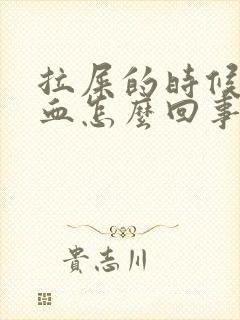 拉屎的時候
血怎麼回事
貴志川